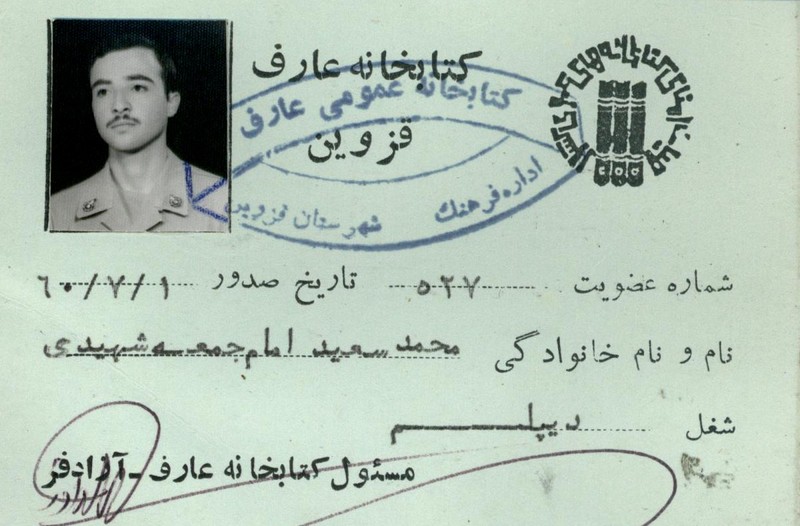 کتابخانه عارف
قزوین
کتابخانه عمومی عارف
اداره فرهنگ شهرستان قزوین
شماره عضویت ۵۲۷ تاریخ صدور ۶۰/۷/۱
نام و نام خانوادگی محمد سعید امام جمعه شهیدی
شغل دیپلم
مسئول کتابخانه عارف - آزادفر